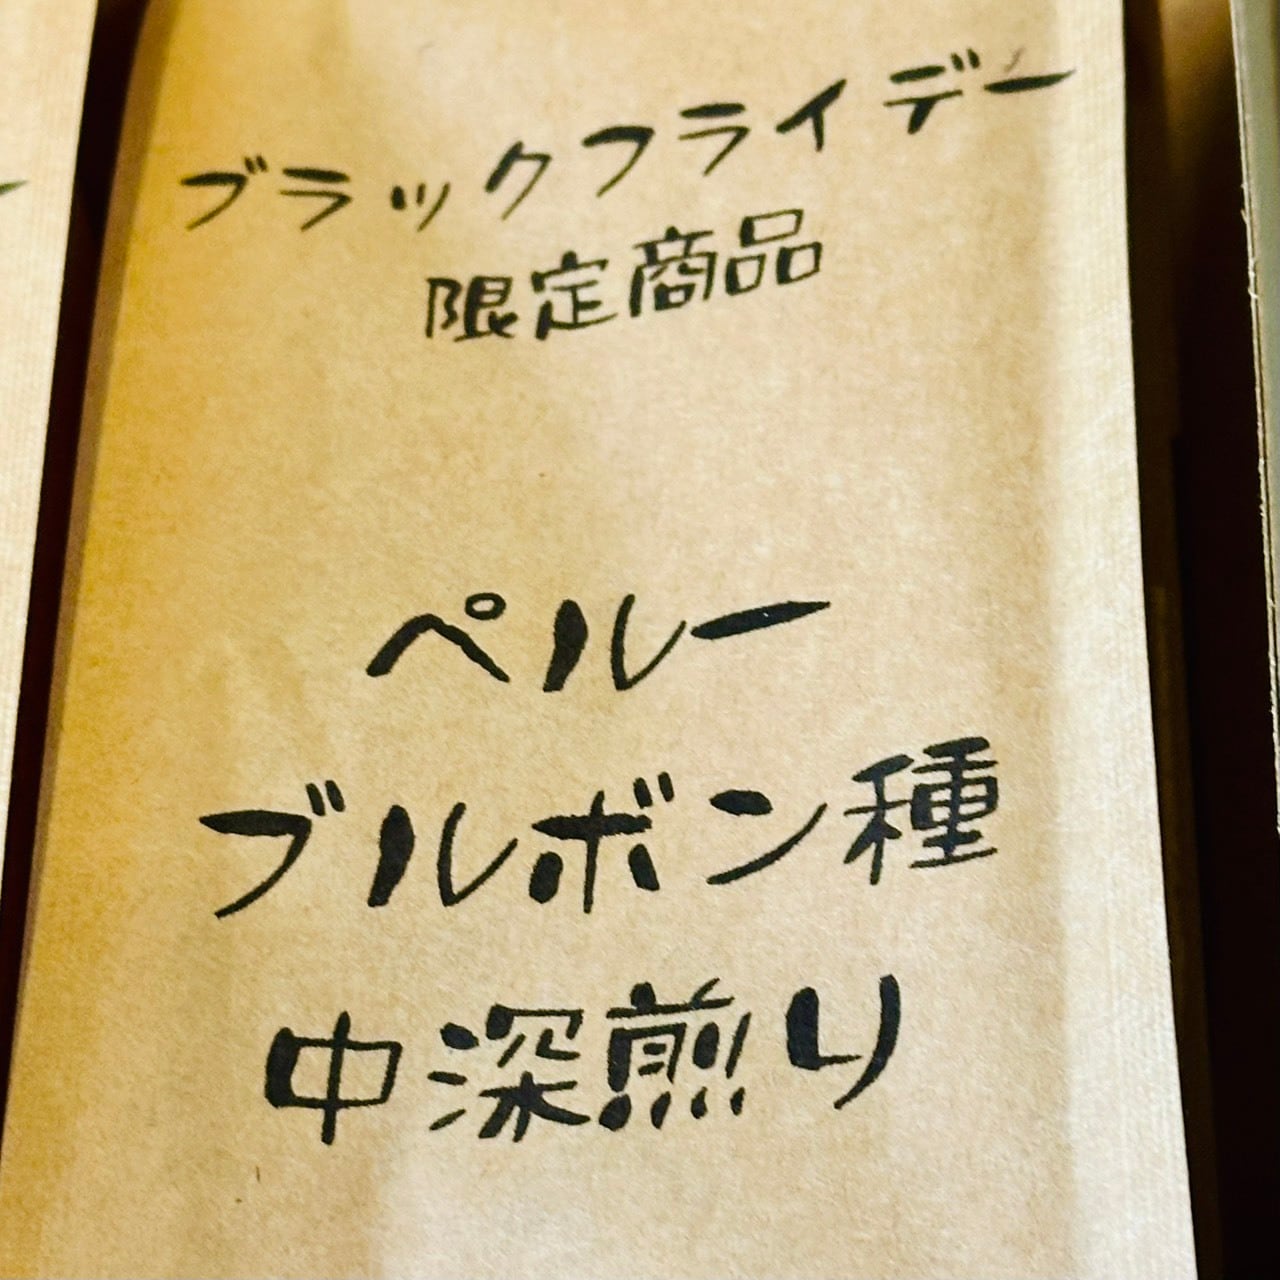 ブラックフライデー
限定商品
ペルー
ブルボン種
中深煎り